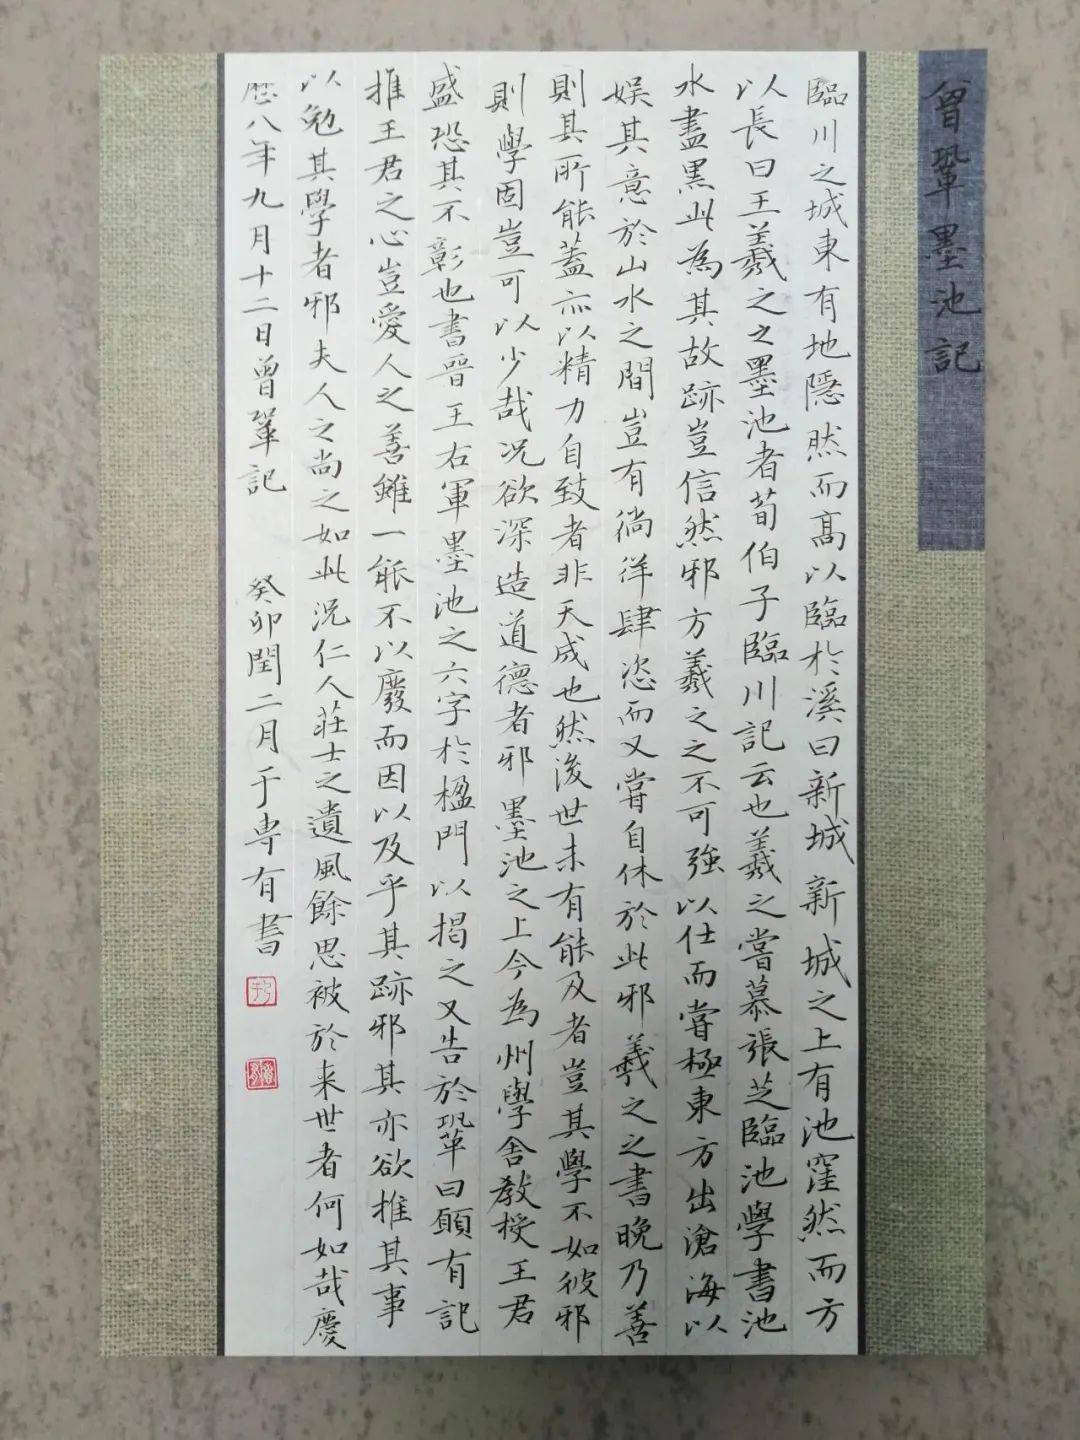 曾鞏墨池記
臨川之城東有地隱然而高以臨於溪曰新城新城之上有池窪然而方
以長曰王羲之之墨池者荀伯子臨川記云也羲之嘗慕張芝臨池學書池
水盡黑此為其故跡豈信然邪方羲之之不可強以仕而嘗極東方出滄海以
娛其意於山水之間豈有徜徉肆恣而又嘗自休於此邪羲之之書晚乃善
則其所能蓋亦以精力自致者非天成也然後世未有能及者豈其學不如彼邪
則學固豈可以少哉况欲深造道德者邪墨池之上今為州學舍教授王君
盛恐其不彰也書晉王右軍墨池之六字於楹門以揭之又告於鞏曰願有記
推王君之心豈愛人之善雖一能不以廢而因以及乎其跡邪其亦欲推其事
以勉其學者邪夫人之尚之如此况仁人莊士之遺風餘思被於来世者何如哉慶
歷八年九月十二日曾鞏記 癸卯閏二月于専有書